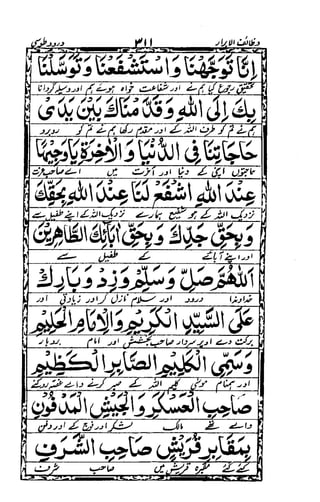 وظائف الابرار ٣١١ درود طوسی
اِنَّا تَوَجَّهْنَا وَاسْتَشْفَعْنَا وَتَوَسَّلْنَا
تحقیق رجوع کیا ہم نے اور شفاعت خواہ ہوئے ہم اور وسیلہ گردانا
بِكَ اِلَى اللهِ وَقَدَّمْنَاكَ بَيْنَ يَدَىْ
ہم نے تم کو طرف اللہ کے اور مقدم رکھا ہم نے تم کو روبرو
حَاجَاتِنَا فِى الدُّنْيَا وَالْاٰخِرَةِ يَا وَجِيْهًا
حاجتوں اپنی کے دنیا اور آخرت میں اے صاحب عزت
عِنْدَ اللهِ اشْفَعْ لَنَا عِنْدَ اللهِ بِحَقِّكَ
نزدیک اللہ کے ہو شفیع ہمارے نزدیک اللہ کے اپنے طفیل سے
وَبِحَقِّ جَدِّكَ وَبِحَقِّ اٰبَائِكَ الطَّاهِرِيْنَ
اور اپنے آبائے کے طفیل سے
اَللّٰهُمَّ صَلِّ وَسَلِّمْ وَزِدْ وَبَارِكْ
خداوندا درود اور سلام نازل کر اور زیادتی اور
عَلَى السَّيِّدِ الْكَرِيْمِ وَالْاِمَامِ الْحَلِيْمِ
برکت دے اوپر سردار صاحب بخشش اور امام بردبار
وَسَمِيِّ الْكَلِيْمِ الصَّابِرِ الْكَظِيْمِ
اور ہمنام موسٰی کلیم اللہ کے صبر کرنے والے غصہ روکنے
صَاحِبِ الْعَسْكَرِ وَالْجَيْشِ الْمَدْفُوْنِ
والے تھے مالک لشکر اور فوج کے اور دفن
بِمَقَابِرِ قُرَيْشٍ صَاحِبِ الشَّرَفِ
کئے گئے مقبرہ قریش میں صاحب شرف